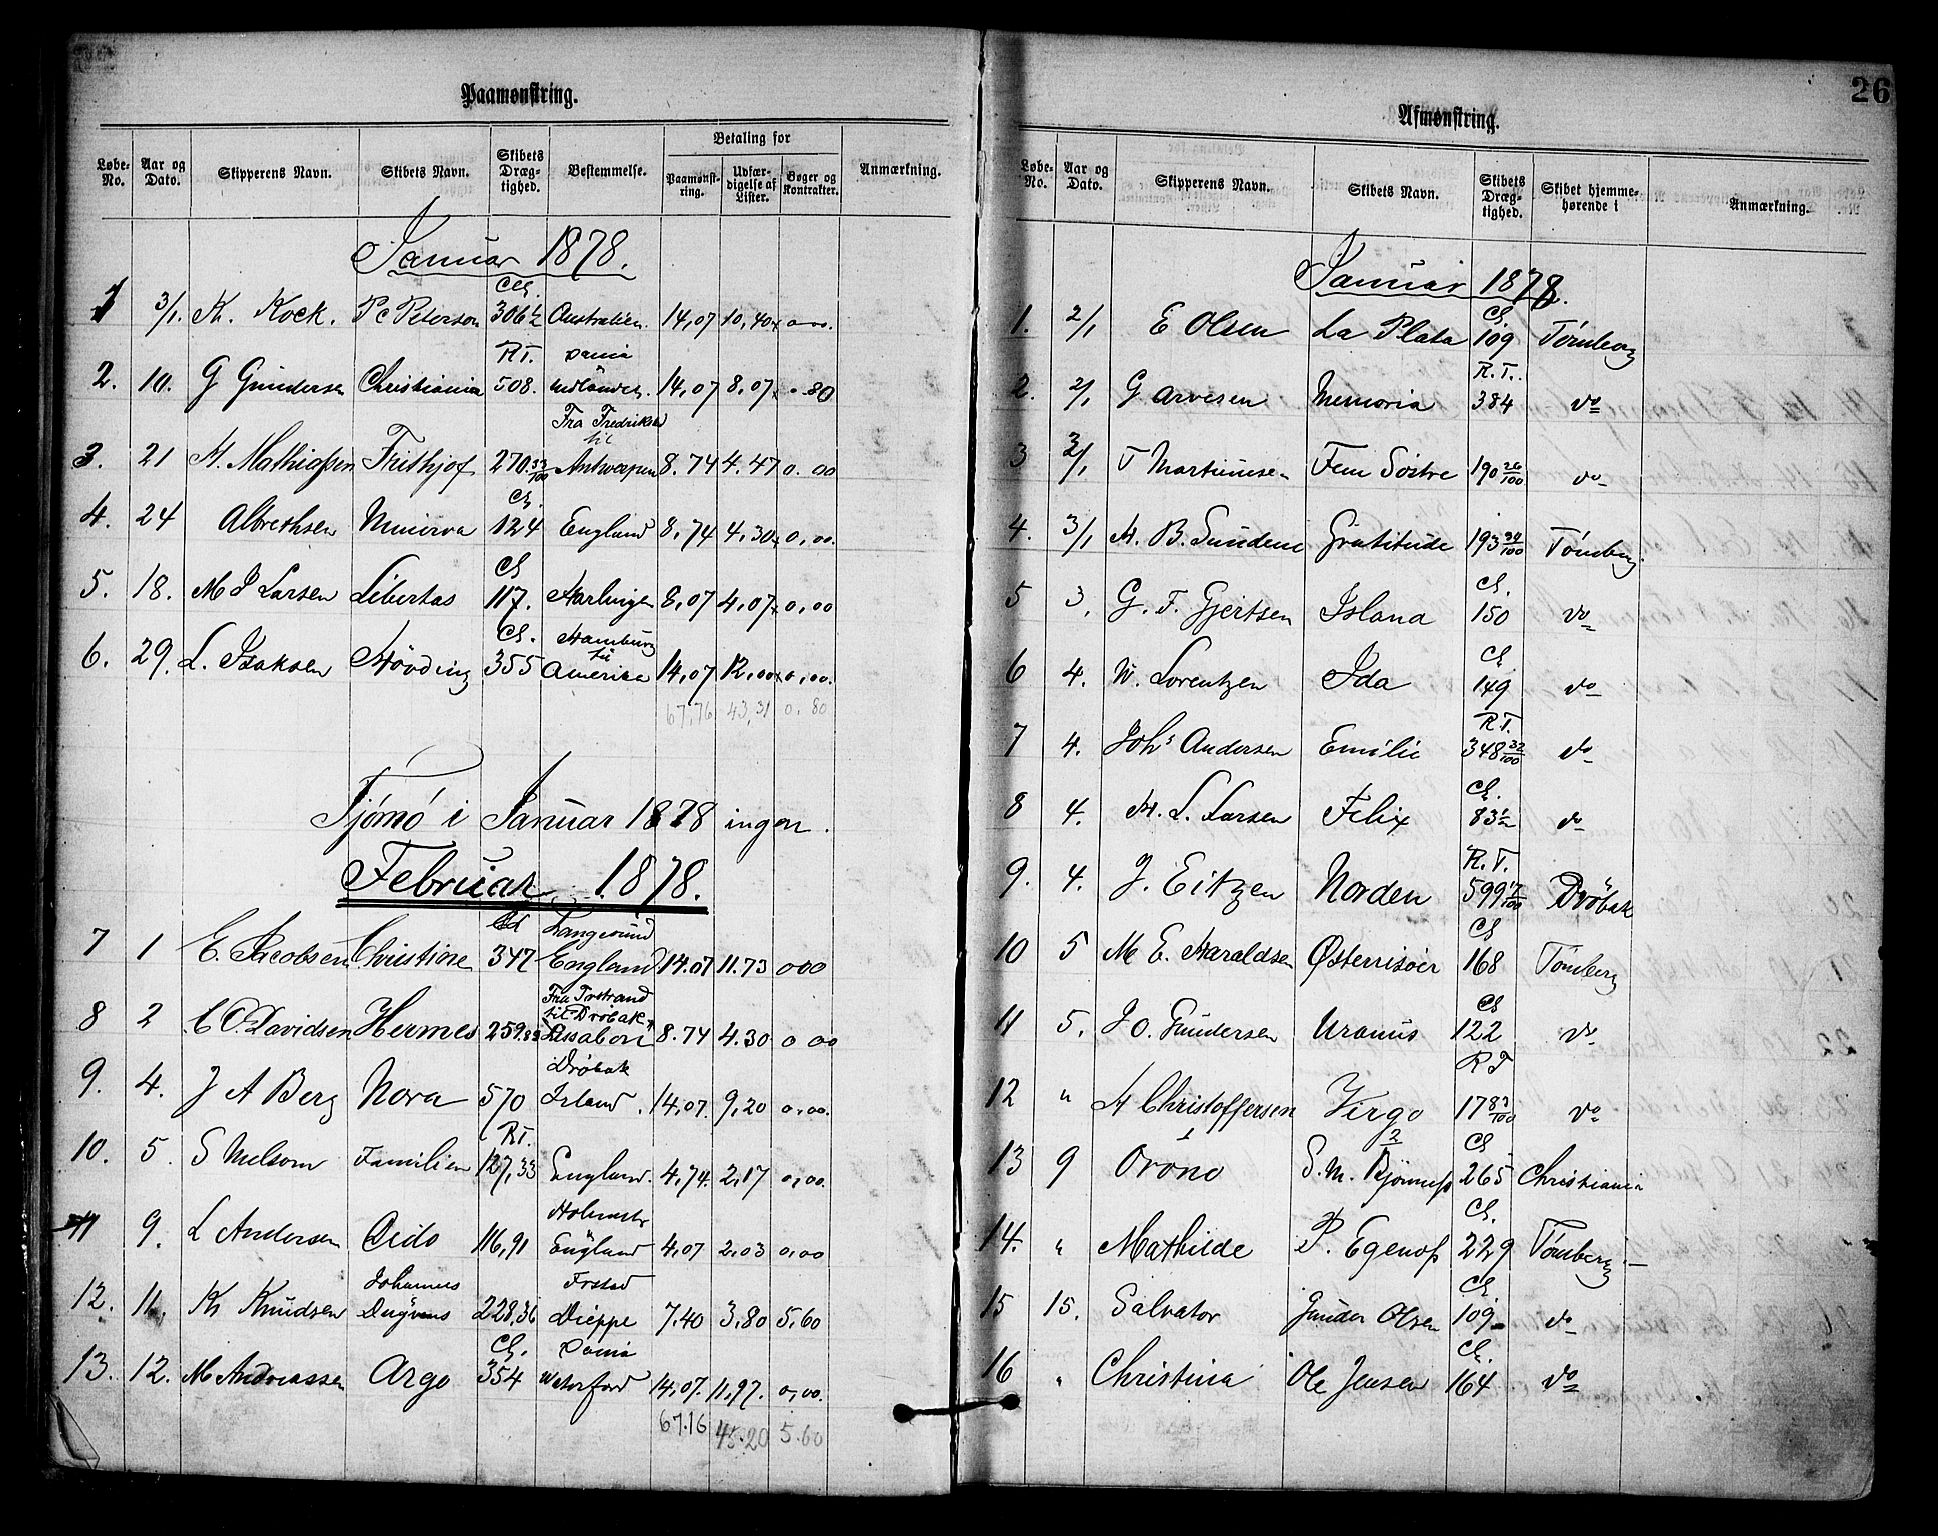 Paamønstring.
Løbe-No. Aar og Dato. Skipperens Navn. Skibets Navn. Skibets Dræg-tighed. Bestemmelse. Betaling for Paamønst-ring. Udfær-digelse af Lister. Bøger og Kontrakter. Anmærkning.
Januar 1878.
Cl.
1 3/1. Kr. Kock. P C Peterson 306 1/2 Australien. 14,07 10,40 0,00.
R.T. Dania
2. 10. G Gundersen Christiania 508. Udlandet. 14,07 8,07 0.80
Fra Fredrikstad
til
3. 21 H. Mathiassen Frithjof 270.33/100 Antwerpen 8.74 4.47 0.00
Cl.
4. 24 Albrethsen Minerva 124 England 8,74 4,30 0,00.
Cl
5. 18. M J Larsen Libertas 117. Harlingen 8,07 4,07 0,00
Cl. Hamburg
til
6. 29. L. Isaksen Høvding 355 Amerika 14,07 12,00 0,00.
67,76 43,31 0,80
Tjømø i Januar 1878 ingen.
Februar 1878.
Cl Langesund
7 1 E. Jacobsen Christine 347 England 14.07 11.73 0 00
Fra
til Drøbak
8 2 C O. Davidsen Hermes 259.89 Lissabon 8.74 4.30 0 00
Drøbak
9. 4. J A Berg Nora 570 Irland. 14,07. 9,20 0,00.
R.T.
10. 5. S Melsom Familien 127,33 England. 4,74. 2,17 0,00.
Holmestr
11 9. L Andersen Dido 116,91 England 4,07 2,03 0,00
Johannes Frstad
12. 11. Kr Knudsen 228,36 Dieppe 7.40 3,80 5,60
Cl. Dania
13. 12. M Andreassen Argo 354 Waterford 14,07. 11,97. 0,00.
67.16 45.20 5.60
26
Afmønstring.
Løbe-No. Aar og Dato. Skipperens Navn. Skibets Navn. Skibets Dræg-tighed. Skibet hjemme-hørende i Anmærkning.
Januar 1878.
Cl.
1. 2/1 E Olsen La Plata 109 Tønsberg
R.T.
2. 2/1 G Arvesen Memoria 384 do
3 2/1 T Martinusen Fem Søstre 190 26/100 do
4. 3/1 H. B. Sundene Gratitude 193 34/100 Tønsberg
Cl.
5 3. G. F. Gjertsen Island 150 do
Cl
6 4. W. Lorentzen Ida 149 do
R.T.
7 4. Johs Andersen Emilie 348 32/100 do
Cl.
8 4. H. L. Larsen Felix 83 1/2 do
R.T.
9. 4. J. Eitzen Norden 599 17/100 Drøbak
Cl
10 5 M E. Haraldsen Østerrisøer 168 Tønsberg
Cl
11 5. J O. Gundersen Uranus 122 do
R T
12 " H Christoffersen Virgo 17 83/100 do
1 2 Cl
13 9 Orøno S. M. 265 Christiania
Cl.
14. " Mathilde P. Egenæss 229 Tønsberg
Cl
15 15. Salvator Gunder Olsen 109 do
Cl.
16 " Christina Ole Jensen 164 do